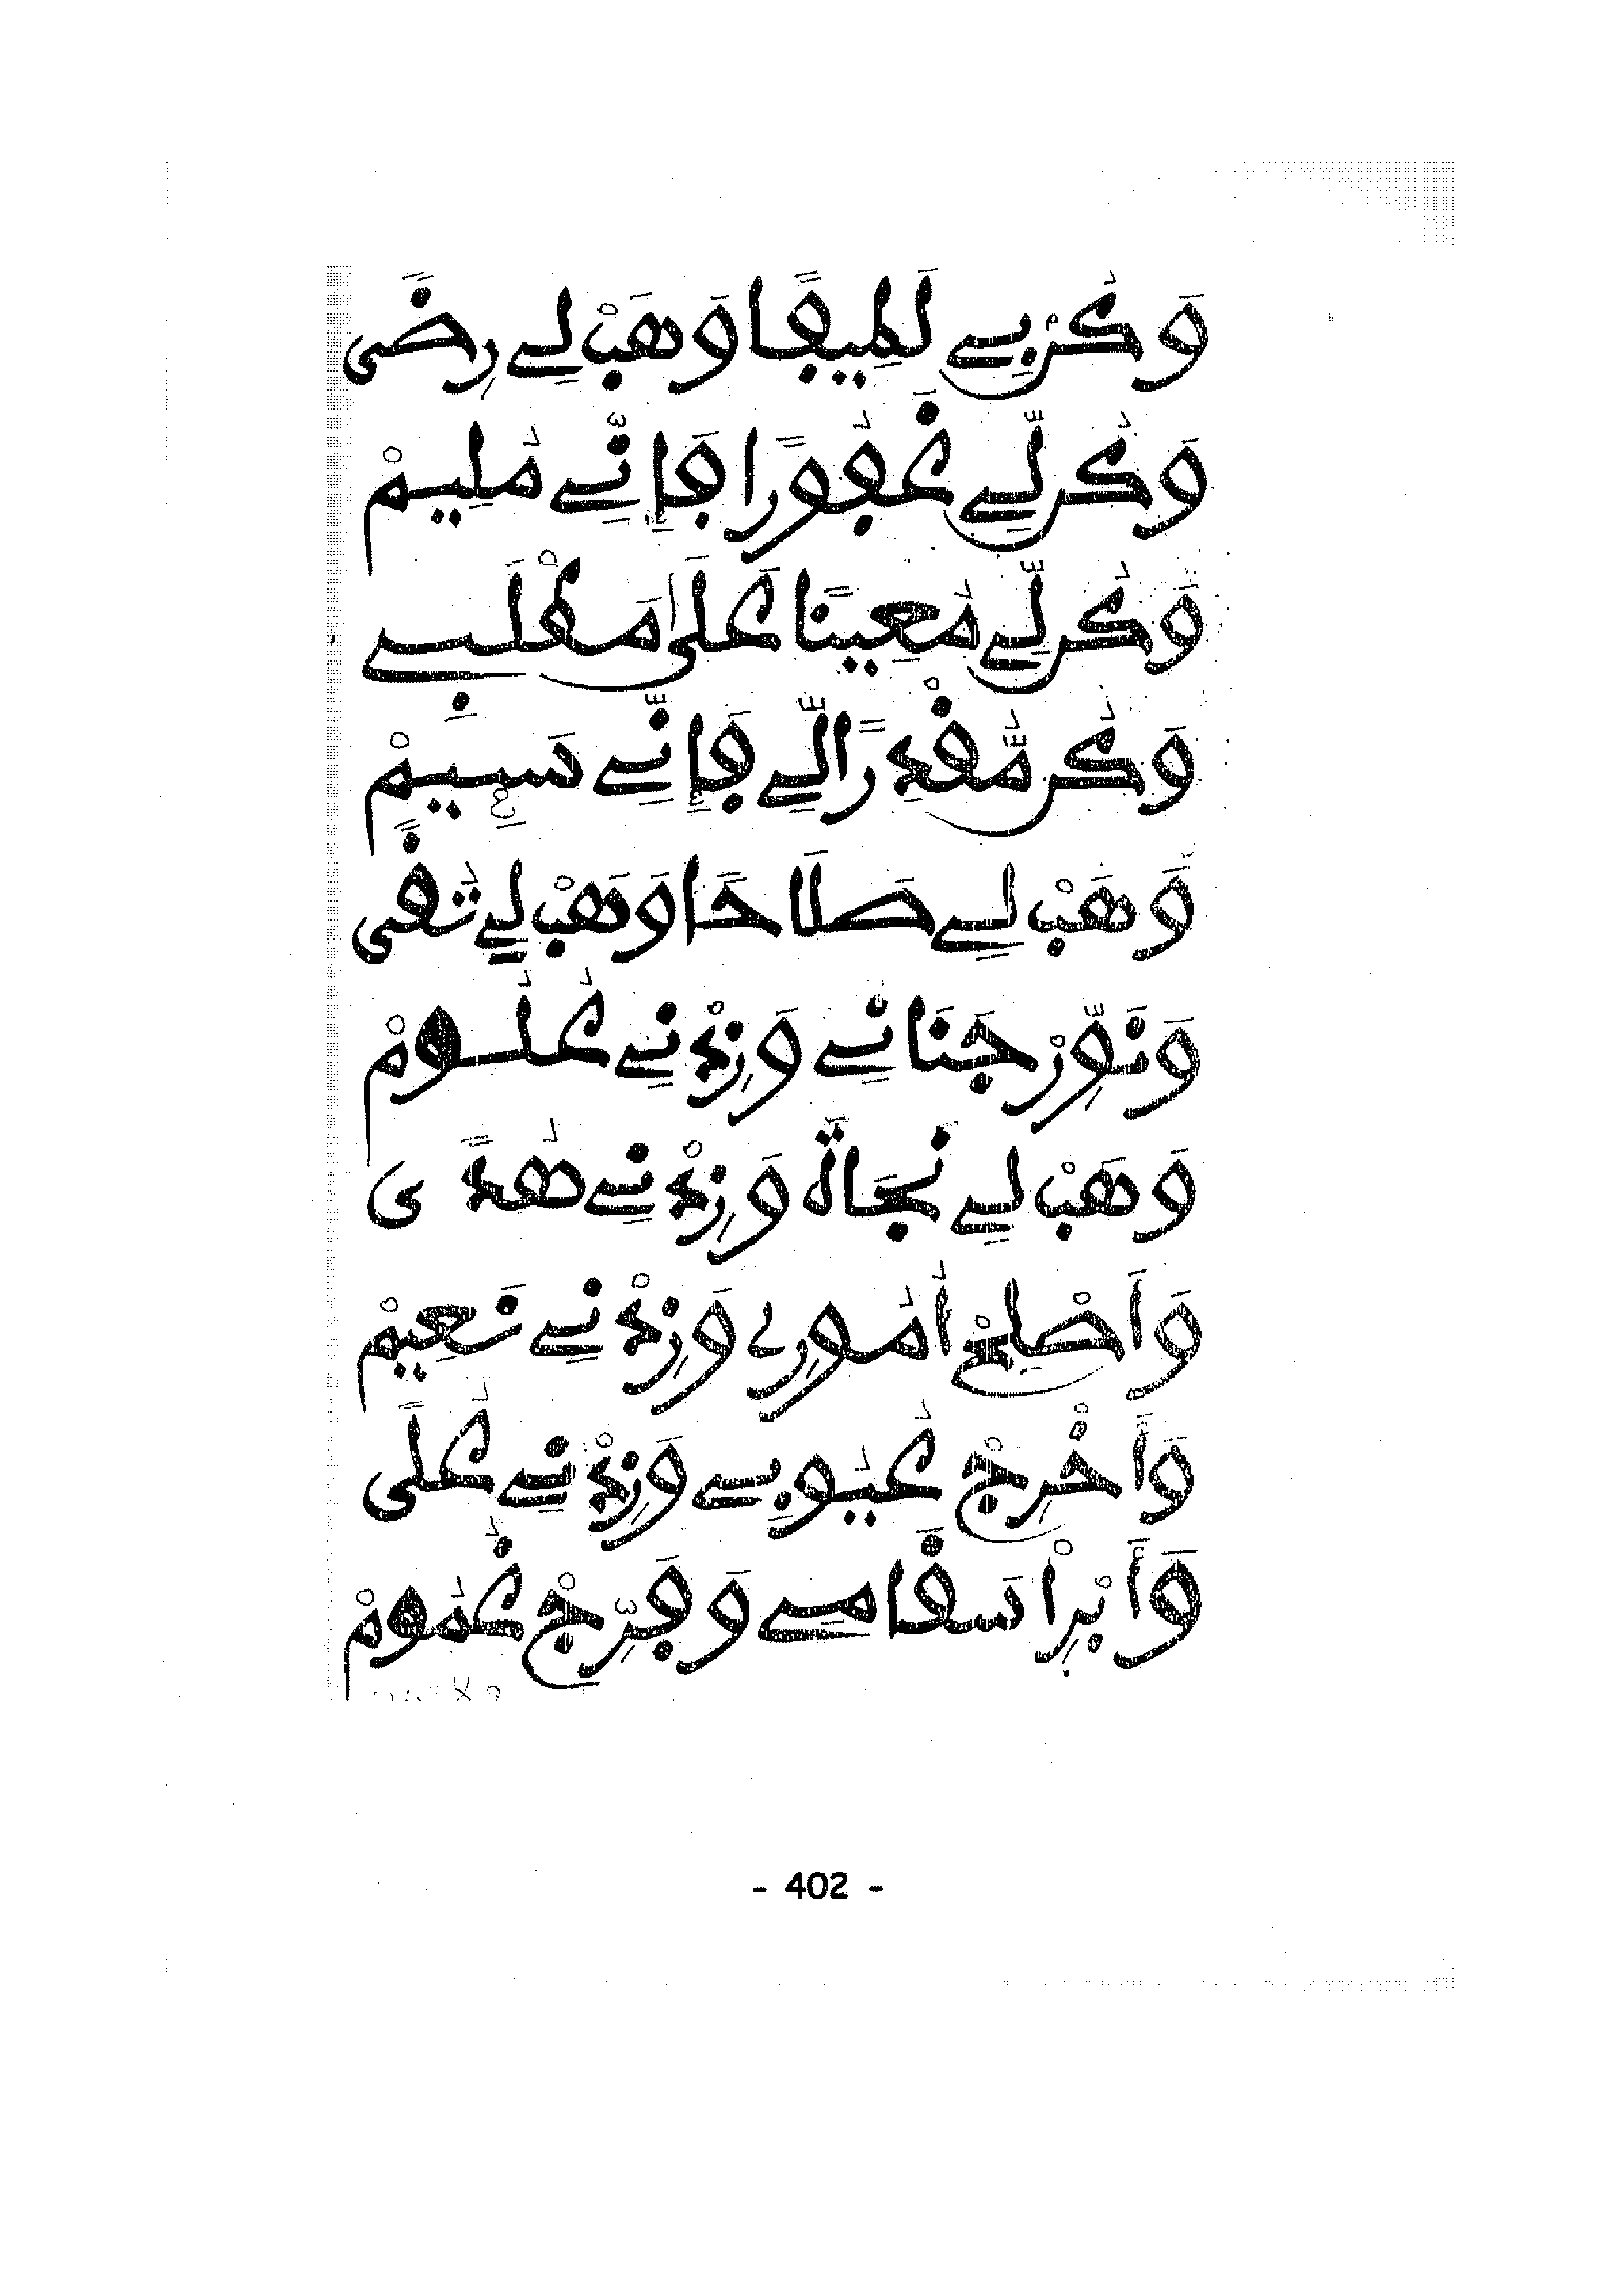 وَكُن بِے لَطِيفًا وَهَبْ لِے رِضًى
وَكُن لِّے غَفُورًا فَإِنِّے مُلِيمْ
وَكُن لِّے مُعِينًا عَلَى مَطْلَبِے
وَكُن مُّقْدِرًا لِّے فَإِنِّے سَئِيمْ
وَهَبْ لِے صَلَاحًا وَهَبْ لِے تُقًى
وَنَوِّرْ جَنَانِے وَزِدْنِے عُلُومْ
وَهَبْ لِے نَجَاةً وَزِدْنِے هُدًى
وَأَصْلِحْ أُمُورِے وَزِدْنِے نَعِيمْ
وَأَخْرِجْ عُيُوبِے وَزِدْنِے عُلًى
وَأَبْرِأْ سَقَامِے وَفَرِّجْ غُمُومْ
- 402 -